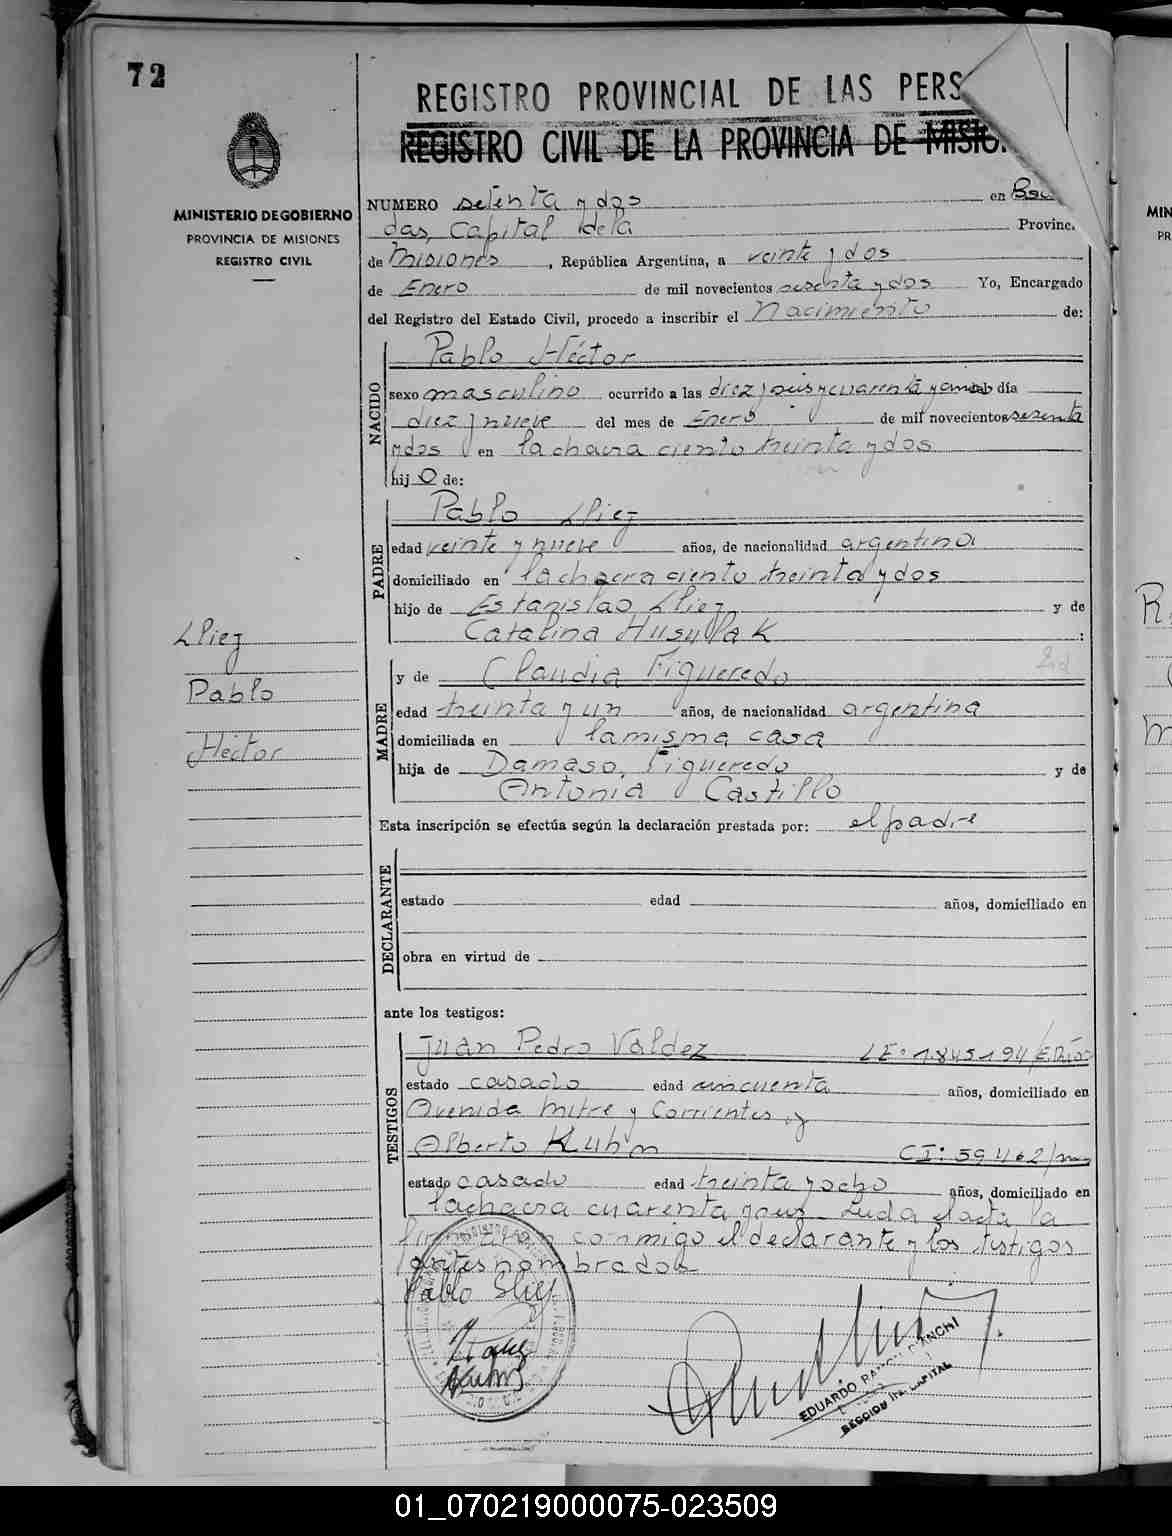 72
REGISTRO PROVINCIAL DE LAS PERS
REGISTRO CIVIL DE LA PROVINCIA DE MISIO
MINISTERIO DE GOBIERNO
PROVINCIA DE MISIONES
REGISTRO CIVIL
NUMERO setenta y dos en Posa
das, Capital de la Provinc
de Misiones, República Argentina, a veinte y dos
de Enero de mil novecientos sesenta y dos Yo, Encargado
del Registro del Estado Civil, procedo a inscribir el Nacimiento de:
NACIDO
Pablo Héctor
sexo masculino ocurrido a las diez y seis y cuarenta y día
diez y nueve del mes de Enero de mil novecientos sesenta
y dos en la chacra ciento treinta y dos
hijo de:
PADRE
Pablo Lliez
edad veinte y nueve años, de nacionalidad argentina
domiciliado en la chacra ciento treinta y dos
hijo de Estanislao Lliez y de
Catalina Husulak :
Lliez
Pablo
Héctor
MADRE
y de Claudia Figueredo
edad treinta y un años, de nacionalidad argentina
domiciliada en la misma casa
hija de Damaso Figueredo y de
Antonia Castillo
Esta inscripción se efectúa según la declaración prestada por: el padre
DECLARANTE
estado edad años, domiciliado en
obra en virtud de
ante los testigos:
TESTIGOS
Juan Pedro Valdez LE: 1.845194/E.Ríos
estado casado edad cincuenta años, domiciliado en
Avenida Mitre y Corrientes y
Alberto Kuhn CI: 59462/
estado casado edad treinta y ocho años, domiciliado en
la chacra cuarenta y Leida el acta la
firmaron conmigo el declarante y los testigos
antes nombrados
Pablo Sliez
Kuhn
EDUARDO RAMON BIANCHI
SECCION 1ra. CAPITAL
MIN
PR
01_070219000075-023509